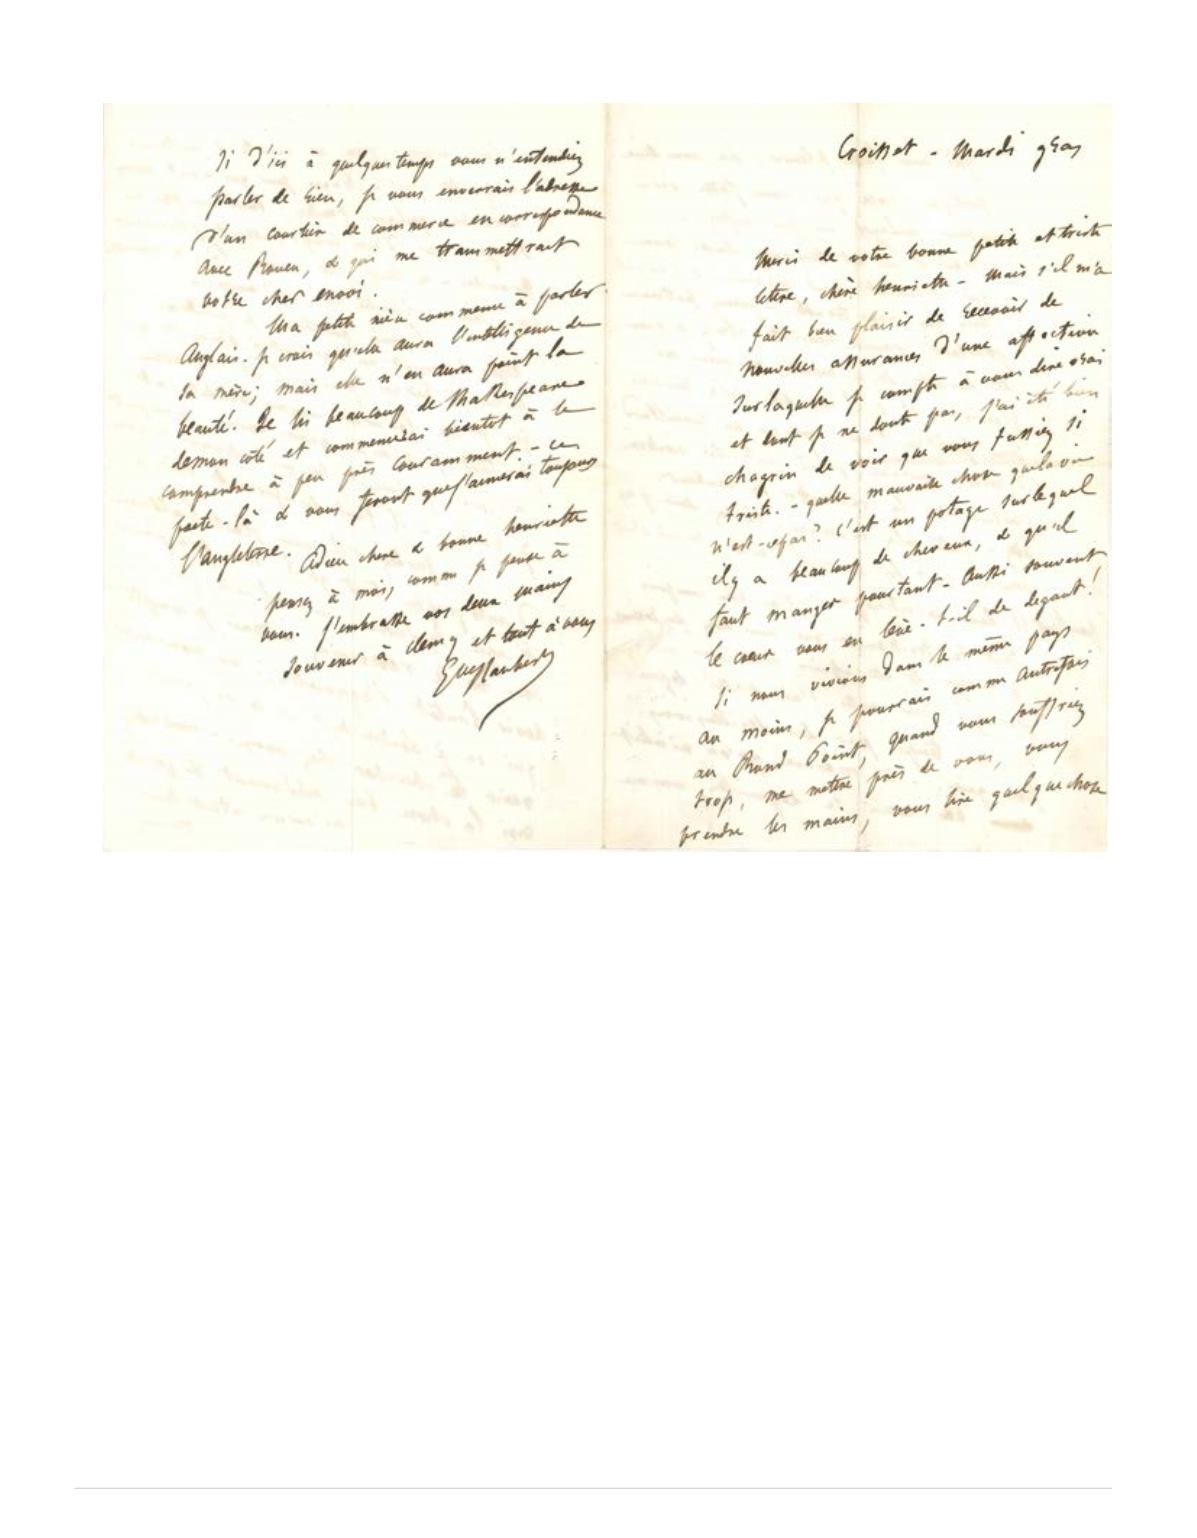 Croisset - Mardi gras
Merci de votre bonne petite et triste
lettre, chère henriette - Mais s'il m'a
fait bien plaisir de recevoir de
nouvelles assurances d'une affection
sur laquelle je compte à vous dire vrai
et dont je ne doute pas, j'ai été bien
chagrin de voir que vous fussiez si
triste. - quelle mauvaise chose que la vie
n'est-ce pas? C'est un potage sur lequel
il y a beaucoup de cheveux, & qu'il
faut manger pourtant - Aussi souvent
le coeur vous en lève-t-il de degout!
Si nous vivions dans le même pays
au moins, je pourrais comme autrefois
au Rond Point, quand vous souffriez
trop, me mettre près de vous, vous
prendre les mains, vous lire quelque chose
Si d'ici à quelques temps vous n'entendiez
parler de rien, je vous enverrais l'adresse
d'un courtier de commerce en correspondance
avec Rouen, & qui me transmettrait
votre cher envoi.
Ma petite nièce commence à parler
Anglais. je crois qu'elle aura l'intelligence de
sa mère; mais elle n'en aura point la
beauté. Je lis beaucoup de Shakespeare
de mon coté et commencerai bientot à le
comprendre à peu près couramment. - ce
poete-là & vous feront que j'aimerai toujours
l'angleterre. Adieu chere & bonne henriette
pensez à moi, comme je pense à
vous. J'embrasse vos deux mains
Souvenir à Clemy et tout à vous
Gve Flaubert